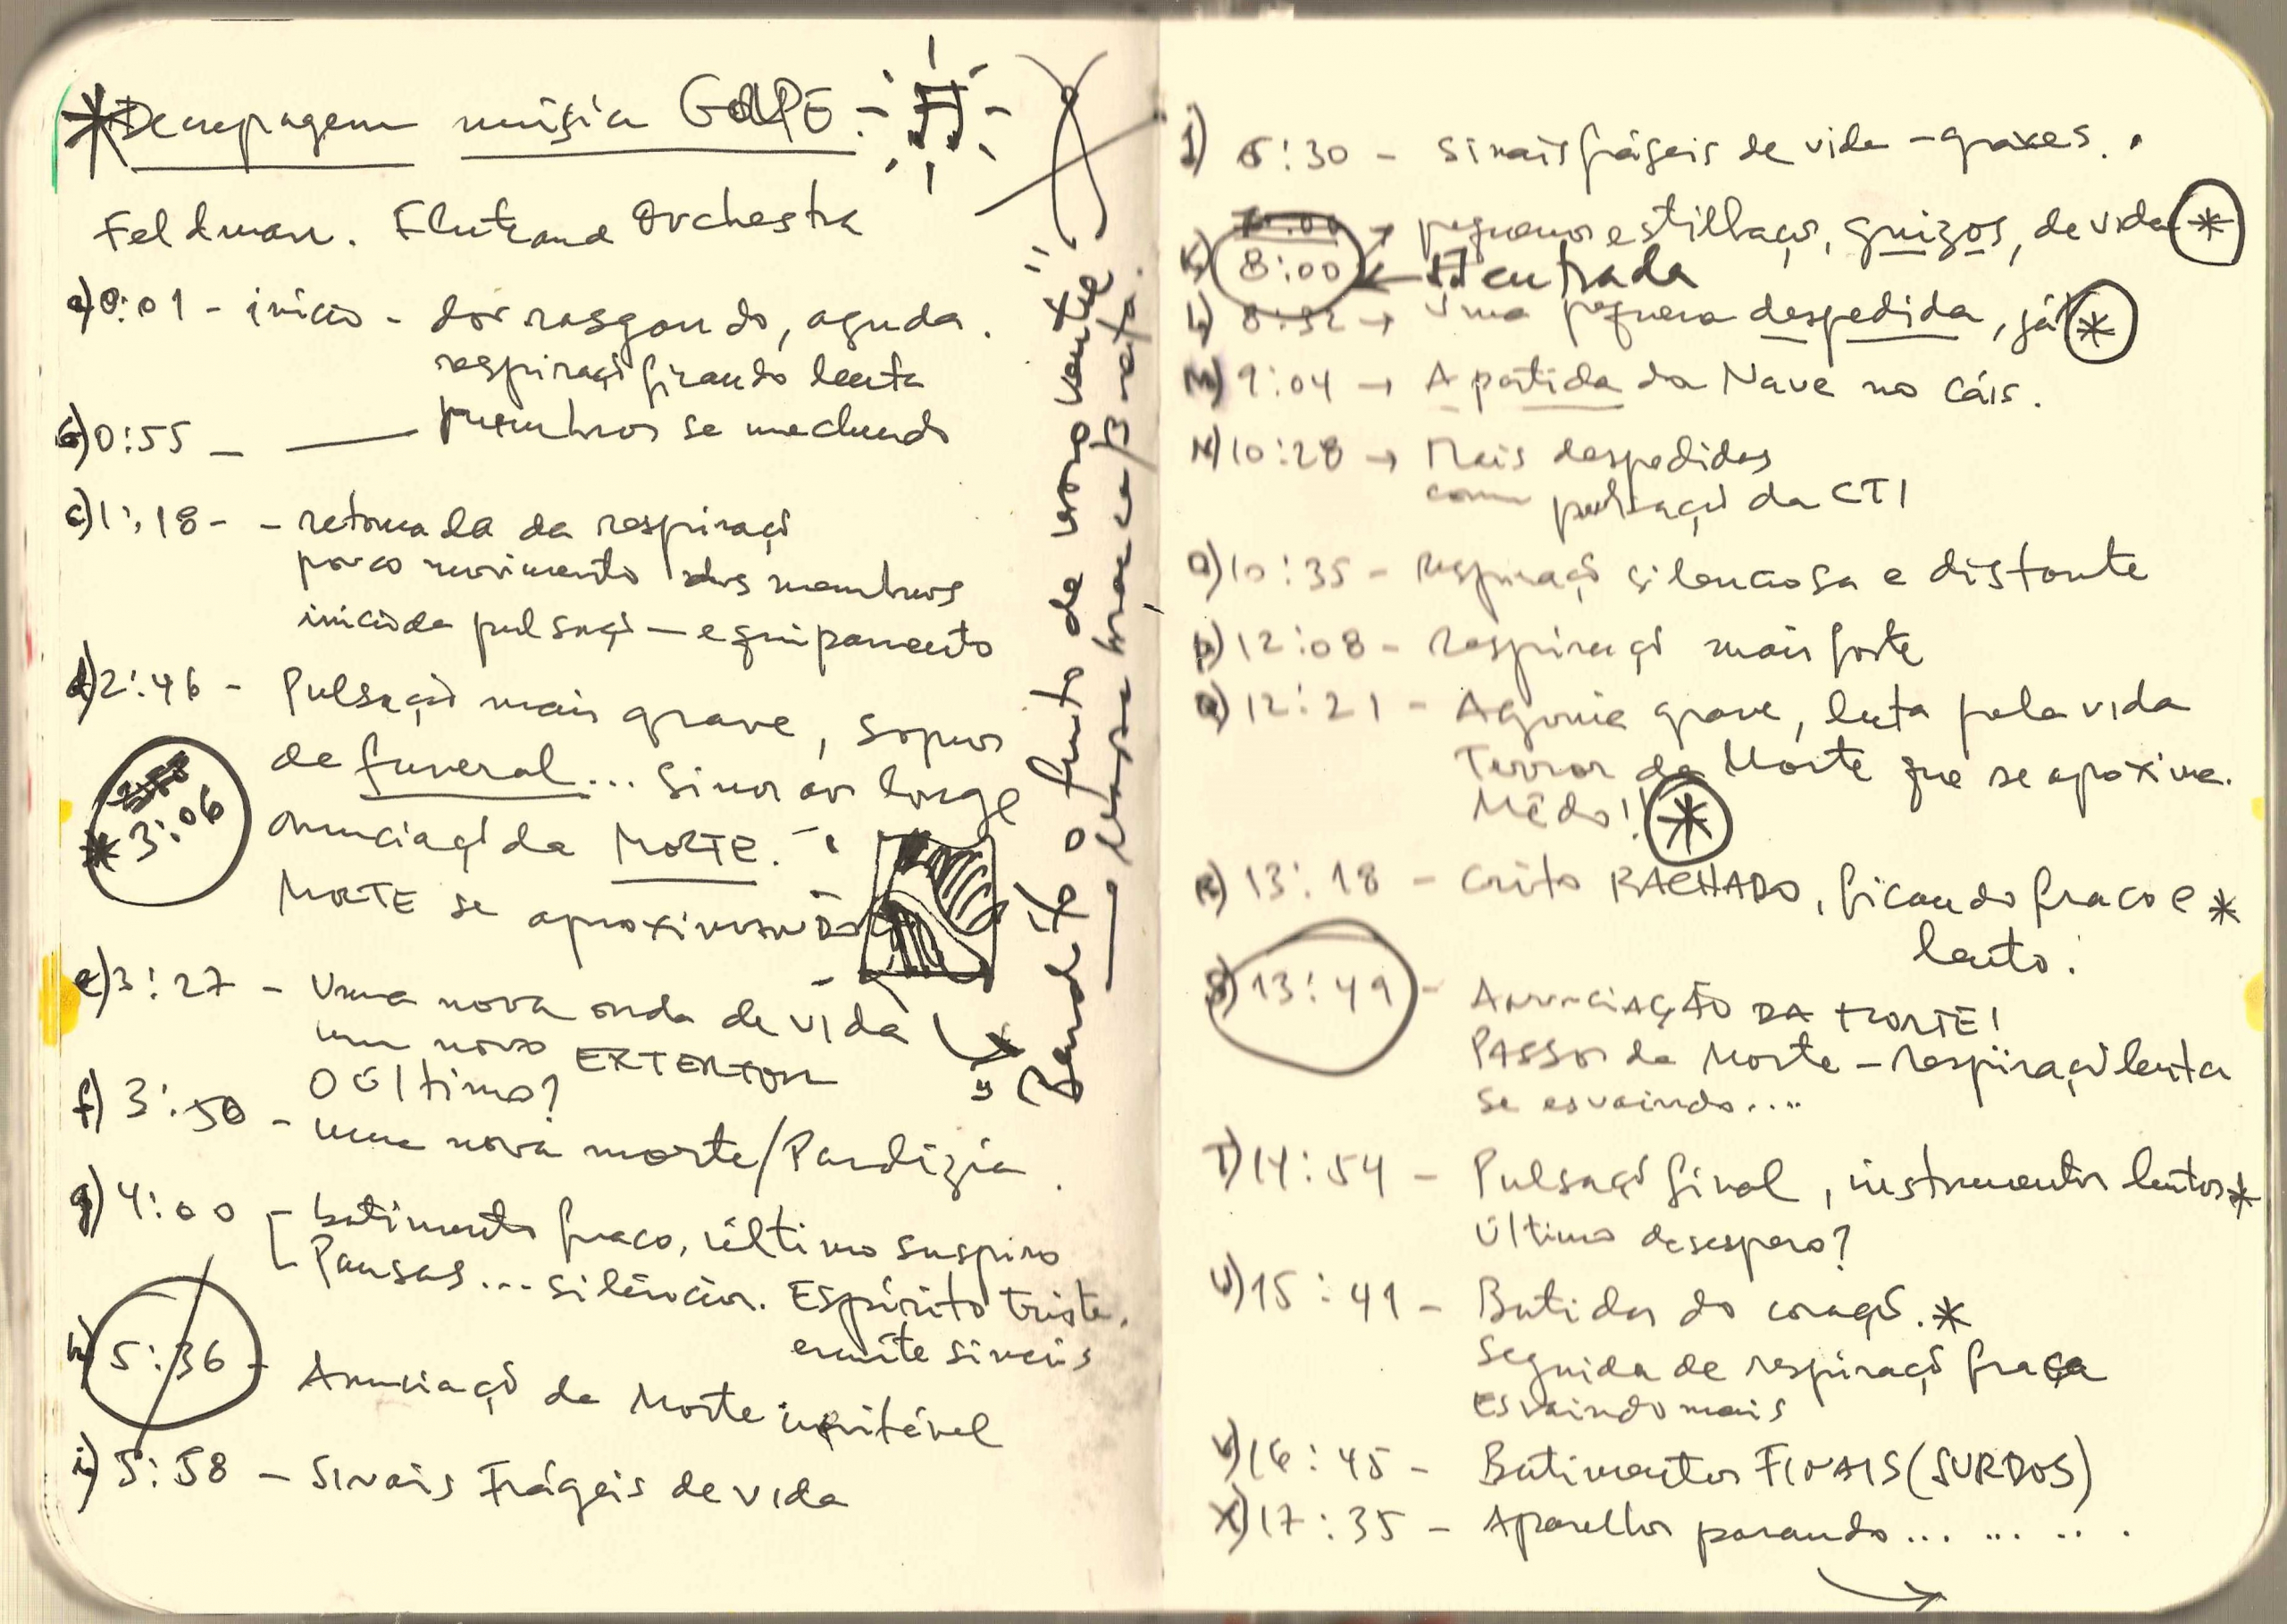 *Decupagem música GOLPE.
Feldman. Flute and Orchestra
a) 0:01 - início - dor rasgando, aguda.
respiração ficando lenta
b) 0:55 - — membros se mechendo
c) 1:18 - - retomada da respiração
pouco movimento dos membros
início da pulsação — equipamento
d) 2:46 - Pulsação mais grave, sopros
de funeral... Sinos ao longe
* 3:06
anunciação da MORTE.
MORTE se aproximando
e) 3:27 - Uma nova onda de vida
um novo EXTERTOR
O último?
f) 3:50 - uma nova morte/Paralizia.
g) 4:00 - batimento fraco, último suspiro
Pausas... silêncios. Espírito triste.
emite sinais
h) 5:36 - Anunciação da Morte inevitável
i) 5:58 - Sinais Frágeis de vida
"Bendito o fruto de vosso ventre"
Nossa branca/Preta.
J) 6:30 - Sinais frágeis de vida - graves.
→ pequenos estilhaços, guizos, de vida *
K) 8:00 ← entrada
L) 8:32 → Uma pequena despedida, já *
M) 9:04 → A partida da Nave no Cáis.
N) 10:28 → Mais despedidas
com pulsação da CTI
O) 10:35 - Respiração silenciosa e distante
P) 12:08 - Respiração mais forte
Q) 12:21 - Agonia grave, luta pela vida
Terror da Morte que se aproxima.
Mêdo! *
R) 13:18 - Grito RACHADO, ficando fraco e *
lento.
S) 13:49 - ANUNCIAÇÃO DA MORTE!
PASSOS da Morte - respiração lenta
se esvaindo....
T) 14:54 - Pulsação final, instrumentos lentos *
Último desespero?
U) 15:41 - Batidas do coração. *
Seguida de respiração fraca
Esvaindo mais
V) 16:45 - Batimentos FINAIS (SURDOS)
X) 17:35 - Aparelhos parando... ... .. .